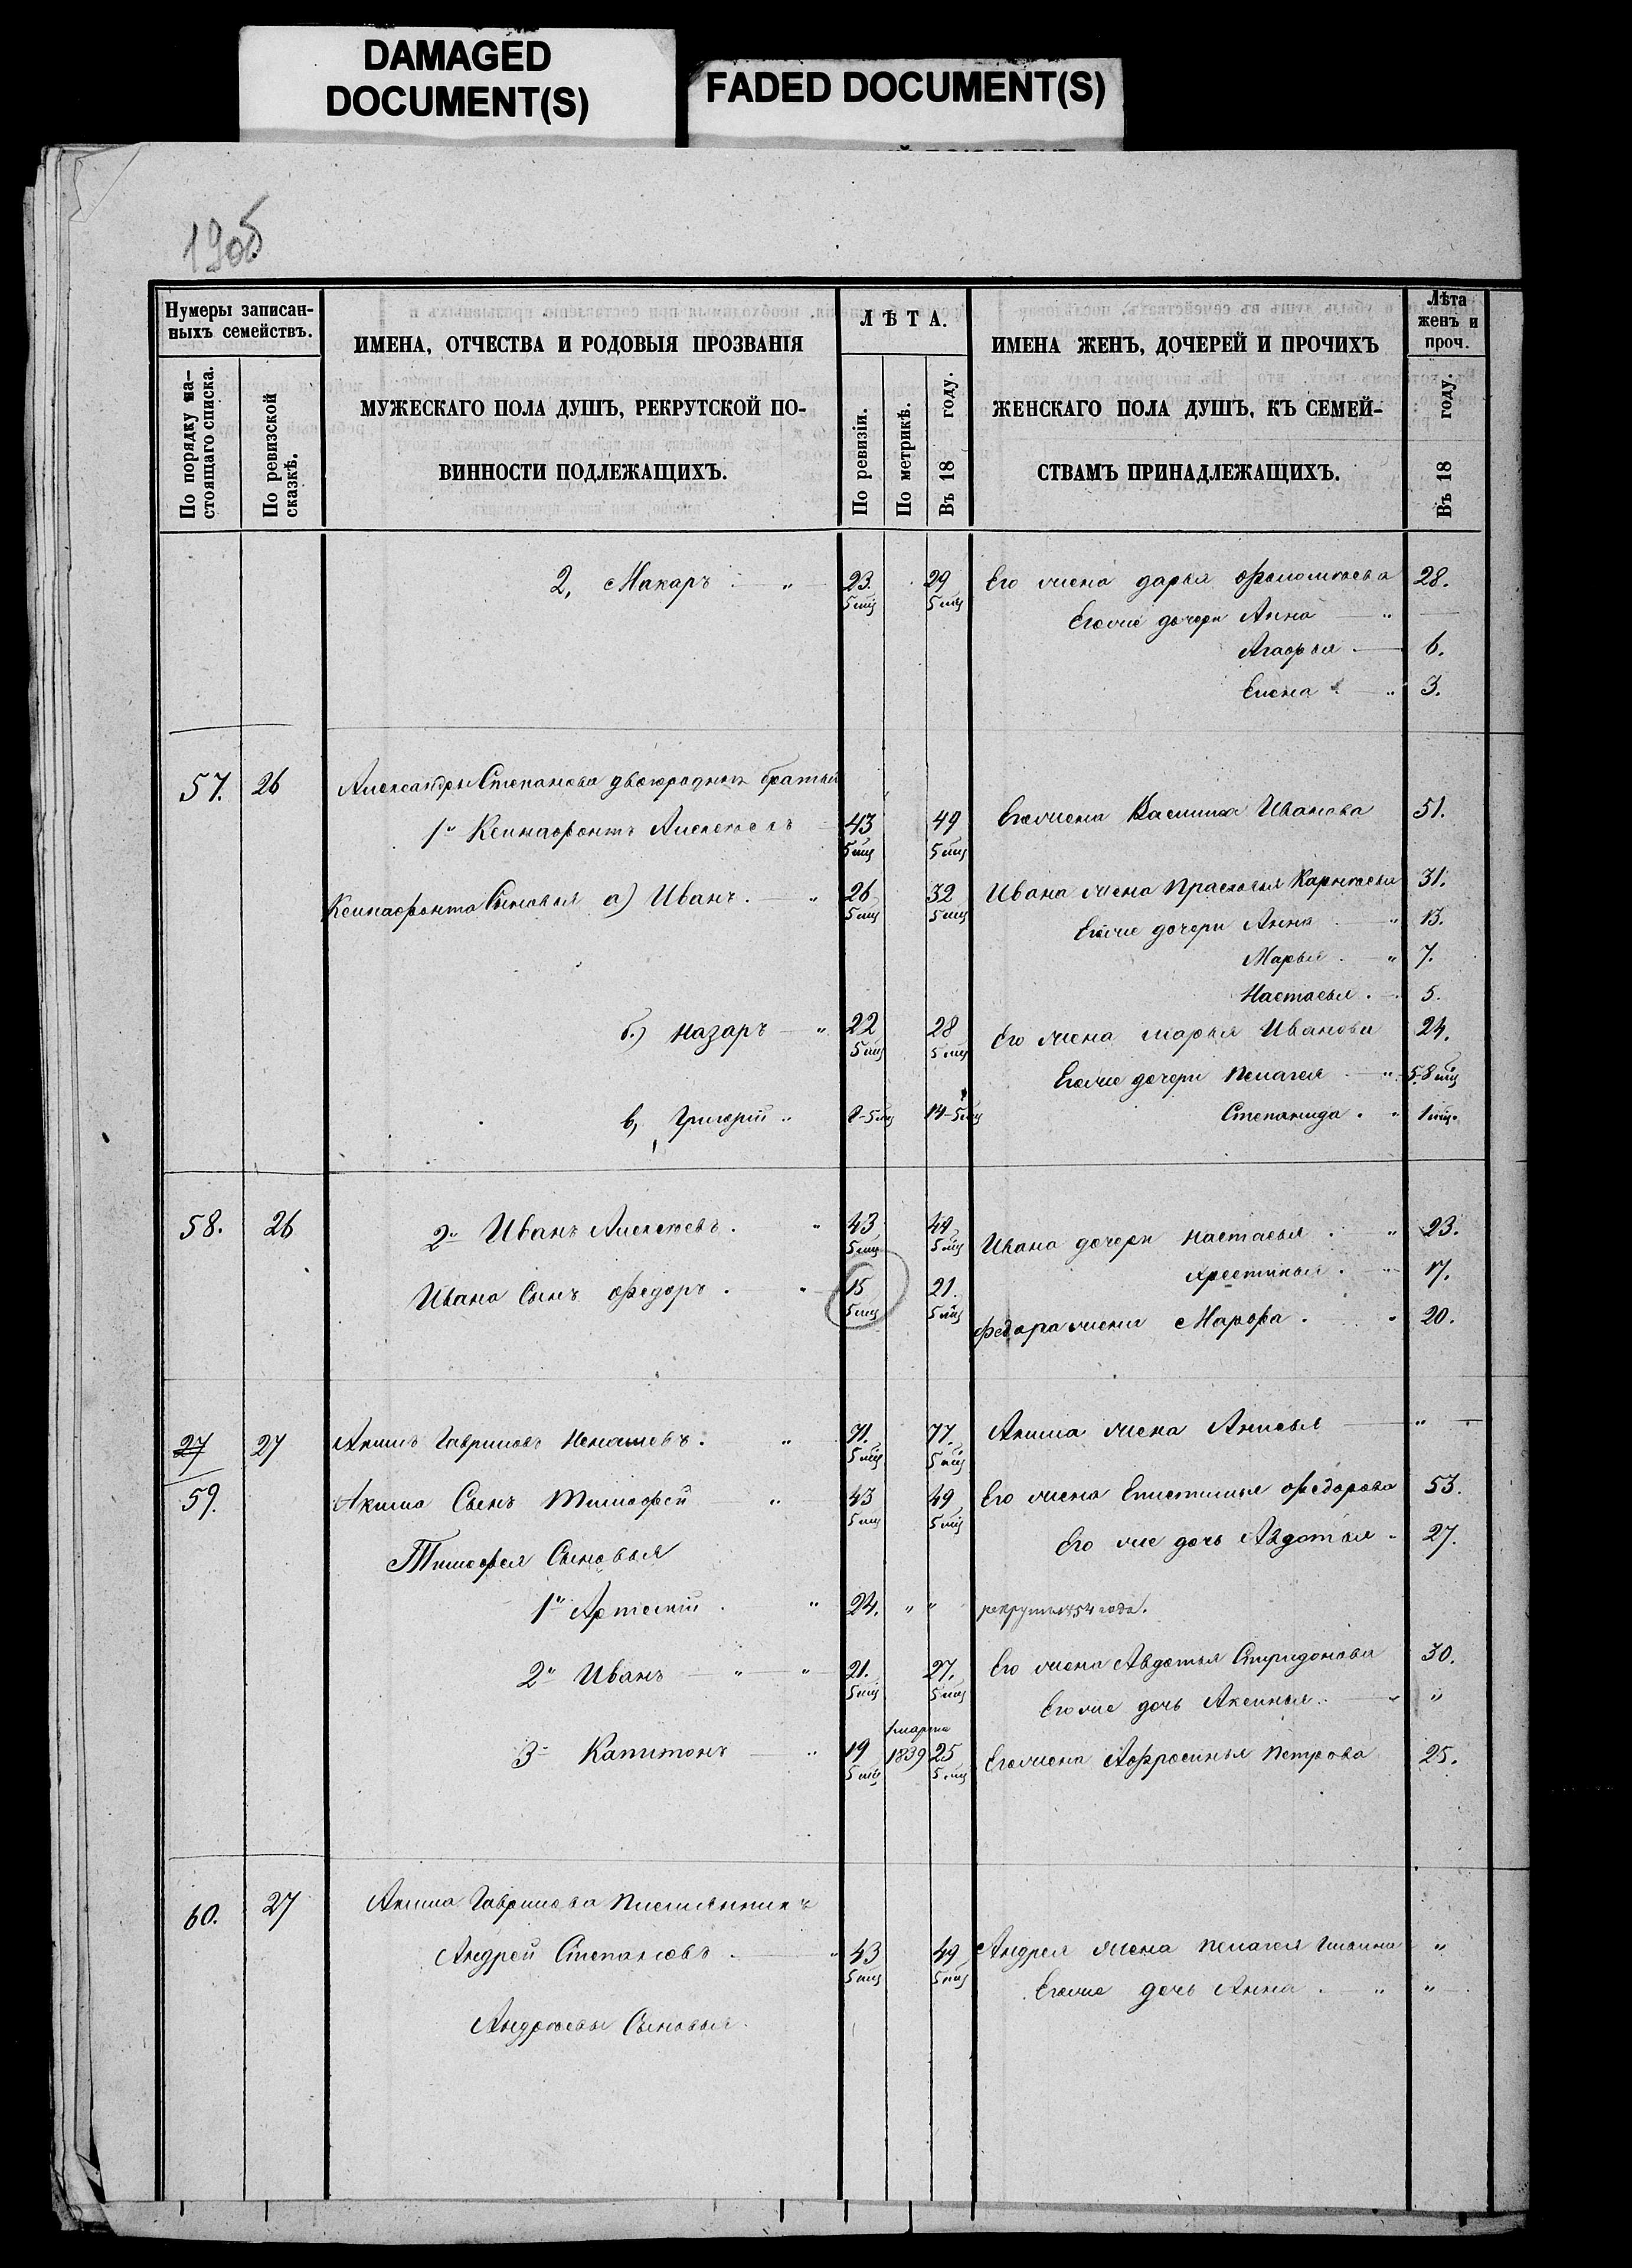 DAMAGED
DOCUMENT(S)
FADED DOCUMENT(S)
190б
Нумеры записан-
ныхъ семействъ.
По порядку на-
стоящаго списка.
По ревизской
сказкѣ.
ИМЕНА, ОТЧЕСТВА И РОДОВЫЯ ПРОЗВАНІЯ
МУЖЕСКАГО ПОЛА ДУШЪ, РЕКРУТСКОЙ ПО-
ВИННОСТИ ПОДЛЕЖАЩИХЪ.
ЛѢТА.
По ревизіи.
По метрикѣ.
Въ 18 году.
ИМЕНА ЖЕНЪ, ДОЧЕРЕЙ И ПРОЧИХЪ
ЖЕНСКАГО ПОЛА ДУШЪ, КЪ СЕМЕЙ-
СТВАМЪ ПРИНАДЛЕЖАЩИХЪ.
Лѣта
женъ и
проч.
Въ 18 году.
2, Макаръ " 23. 5 мц 29 5 мц Его жена дарья 28.
Егоже дочери Анна "
Агафья 6.
Елена " 3.
57. 26 Александры Степанова двоюродныя братья
1" Ксинафонтъ Алексеевъ 43 5 мц 49 5 мц Егожена Василиса Иванова 51.
Ксинафонта Сыновья а) Иванъ. " 26 5 мц 32 5 мц Ивана жена Прасковья Карнѣева 31.
Егоже дочери Анна " 13.
Марья " 7.
Настасья. 5.
б.) Назаръ " 22 5 мц 28 5 мц Его жена марья Иванова 24.
Егоже дочери Пелагея " 5-8 мц
в, Григорій " 8-5 мц 14-5 мц Степанида. " 1 мц.
58. 26 2" Иванъ Алексеевъ. " 43 5 мц 49 5 мц Ивана дочери Настасья " 23.
Хрестинья. " 17.
Ивана Сынъ Федоръ. " 15 5 мц 21. 5 мц
Федора жена Марфа. " 20.
27 27 Акимъ Гавриловъ Ненашевъ. " 71. 5 мц 77. 5 мц Акима жена Анисья "
59. Акима Сынъ Тимофей " 43 5 мц 49 5 мц Его жена Епистимья Федорова 53.
Его же дочь Авдотья " 27.
Тимофея Сыновья
1" Артемій " 24. " " рекрутъ 1854 года.
2" Иванъ " " 21. 5 мц 27. 5 мц Его жена Авдотья Спиридонова 30.
Егоже дочь Аксинья. " "
3" Капитонъ " 19 5 мц 1 марта 1839 25 5 мц Егожена Афросинья Петрова 25.
60. 27 Акима Гаврилова Племянникъ
Андрей Степановъ. " 43 5 мц 49 5 мц Андрея жена Пелагея Ильина "
Егоже дочь Анна. " "
Андрѣевы Сыновья.